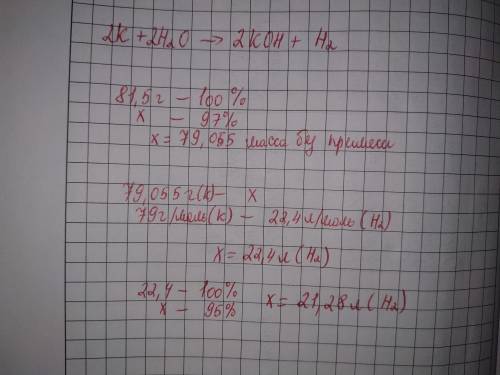 2K + 2H2O → 2KOH + H2
81,5 г – 100 %
x – 97%
x = 79,055 масса без примеси
79,055 г (K) – x
79 г/моль (K) – 22,4 л/моль (H2)
x = 22,4 л (H2)
22,4 – 100% x = 21,28 л (H2)
x – 95%